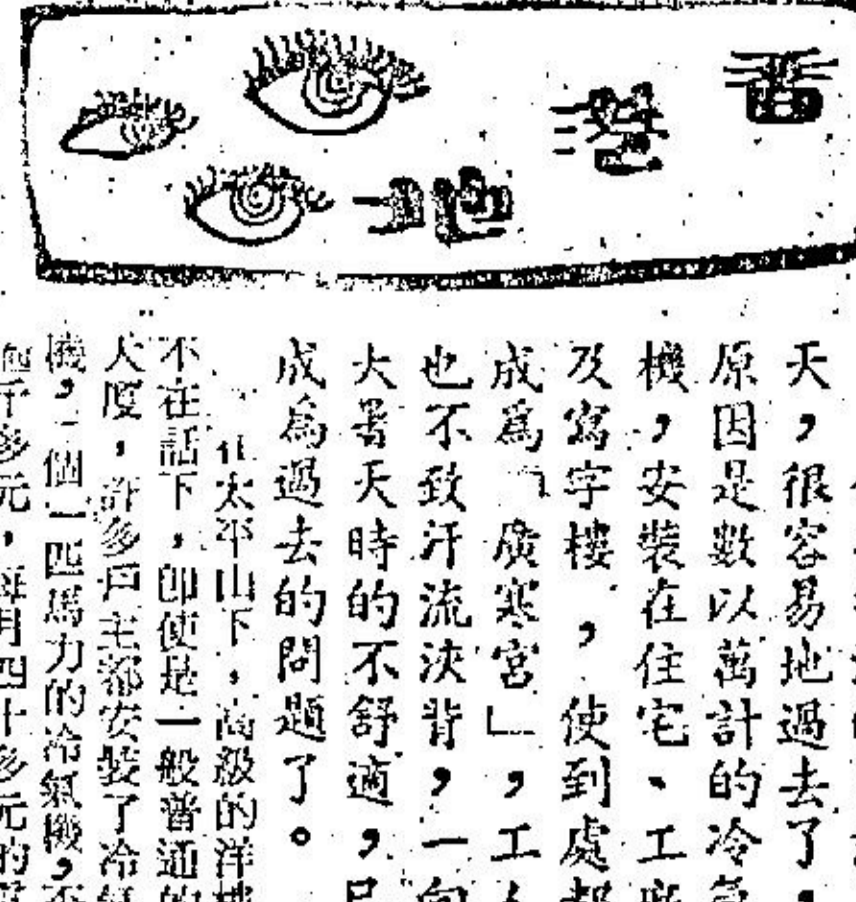 香港地
天，很容易地過去了，
原因是數以萬計的冷氣
機，安裝在住宅、工廠
及寫字樓，使到處都
成爲「廣寒宮」，工人
也不致汗流浹背，一向
大暑天時的不舒適，已
成爲過去的問題了。
在太平山下，高級的洋樓
不在話下，即使是一般普通的
大廈，許多戶主都安裝了冷氣
機，一個一匹馬力的冷氣機，不
千多元，每月四十多元的